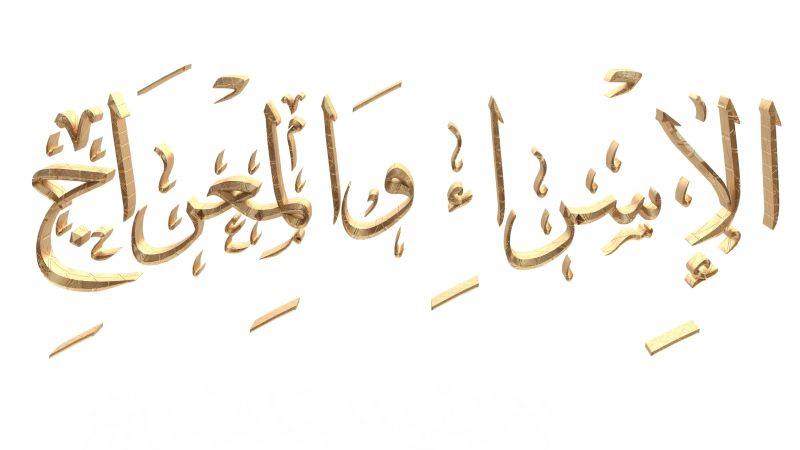 الإِسْرَاءِ وَالْمِعْرَاجِ